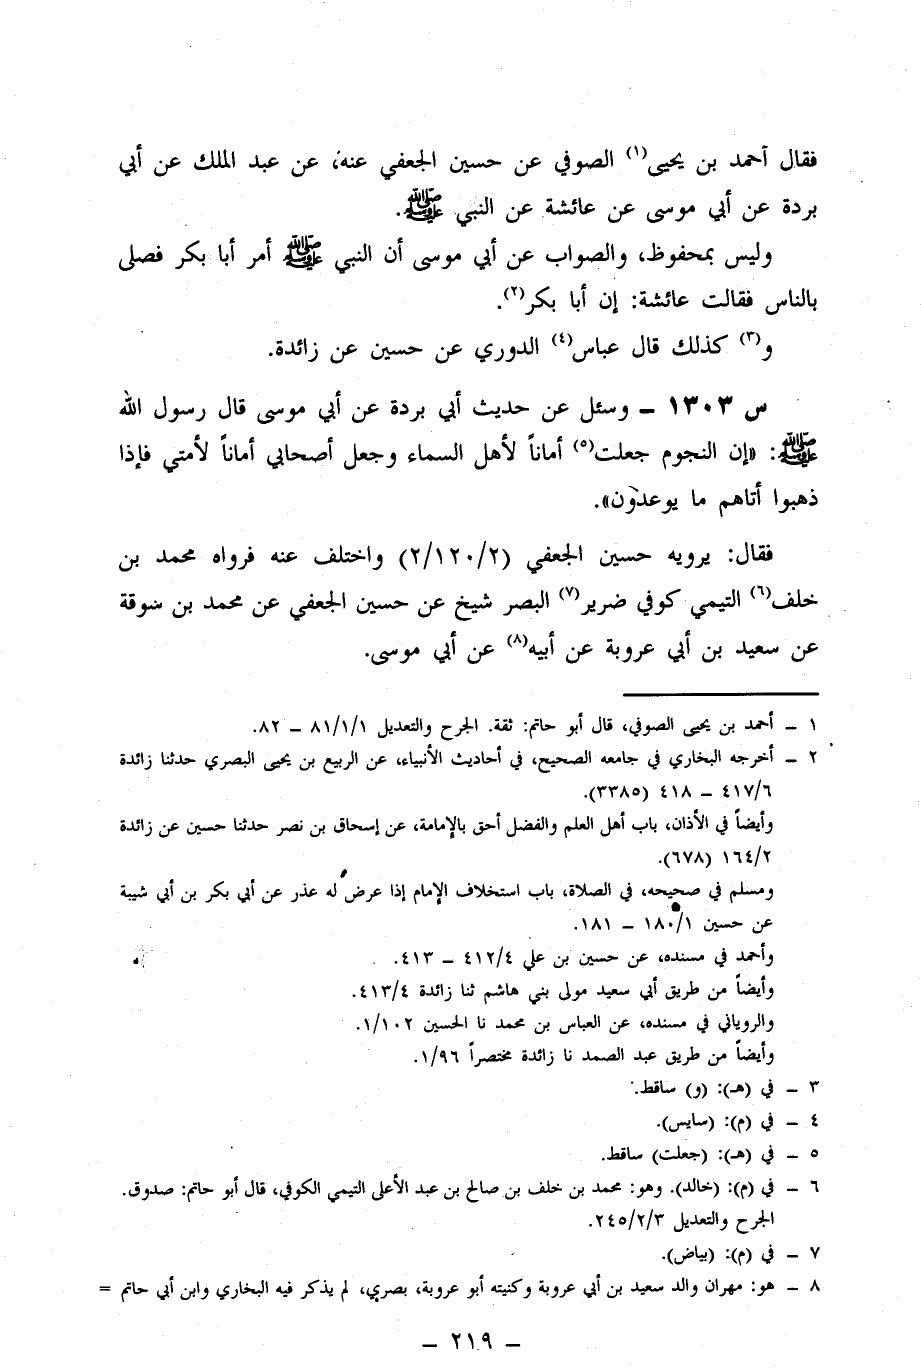 فقال أحمد بن يحيى(١) الصوفي عن حسين الجعفي عنه، عن عبد الملك عن أبي
بردة عن أبي موسى عن عائشة عن النبي ﷺ.
وليس بمحفوظ، والصواب عن أبي موسى أن النبي ﷺ أمر أبا بكر فصلى
بالناس فقالت عائشة: إن أبا بكر(٢).
و(٣) كذلك قال عباس(٤) الدوري عن حسين عن زائدة.
س ١٣٠٣ – وسئل عن حديث أبي بردة عن أبي موسى قال رسول الله
ﷺ: «إن النجوم جعلت(٥) أماناً لأهل السماء وجعل أصحابي أماناً لأمتي فإذا
ذهبوا أتاهم ما يوعدون».
فقال: يرويه حسين الجعفي (٢/١٢٠/٢) واختلف عنه فرواه محمد بن
خلف(٦) التيمي كوفي ضرير(٧) البصر شيخ عن حسين الجعفي عن محمد بن سوقة
عن سعيد بن أبي عروبة عن أبيه(٨) عن أبي موسى.
١ – أحمد بن يحيى الصوفي، قال أبو حاتم: ثقة. الجرح والتعديل ٨١/١/١ – ٨٢.
٢ – أخرجه البخاري في جامعه الصحيح، في أحاديث الأنبياء، عن الربيع بن يحيى البصري حدثنا زائدة
٤١٧/٦ – ٤١٨ (٣٣٨٥).
وأيضاً في الأذان، باب أهل العلم والفضل أحق بالإمامة، عن إسحاق بن نصر حدثنا حسين عن زائدة
١٦٤/٢ (٦٧٨).
ومسلم في صحيحه، في الصلاة، باب استخلاف الإمام إذا عرض له عذر عن أبي بكر بن أبي شيبة
عن حسين ١٨٠/١ – ١٨١.
وأحمد في مسنده، عن حسين بن علي ٤١٢/٤ – ٤١٣.
وأيضاً من طريق أبي سعيد مولى بني هاشم ثنا زائدة ٤١٣/٤.
والروياني في مسنده، عن العباس بن محمد نا الحسين ١/١٠٢.
وأيضاً من طريق عبد الصمد نا زائدة مختصراً ١/٩٦.
٣ – في (هـ): (و) ساقط.
٤ – في (م): (سايس).
٥ – في (هـ): (جعلت) ساقط.
٦ – في (م): (خالد). وهو: محمد بن خلف بن صالح بن عبد الأعلى التيمي الكوفي، قال أبو حاتم: صدوق.
الجرح والتعديل ٢٤٥/٢/٣.
٧ – في (م): (بياض).
٨ – هو: مهران والد سعيد بن أبي عروبة وكنيته أبو عروبة، بصري، لم يذكر فيه البخاري وابن أبي حاتم =
– ٢١٩ –